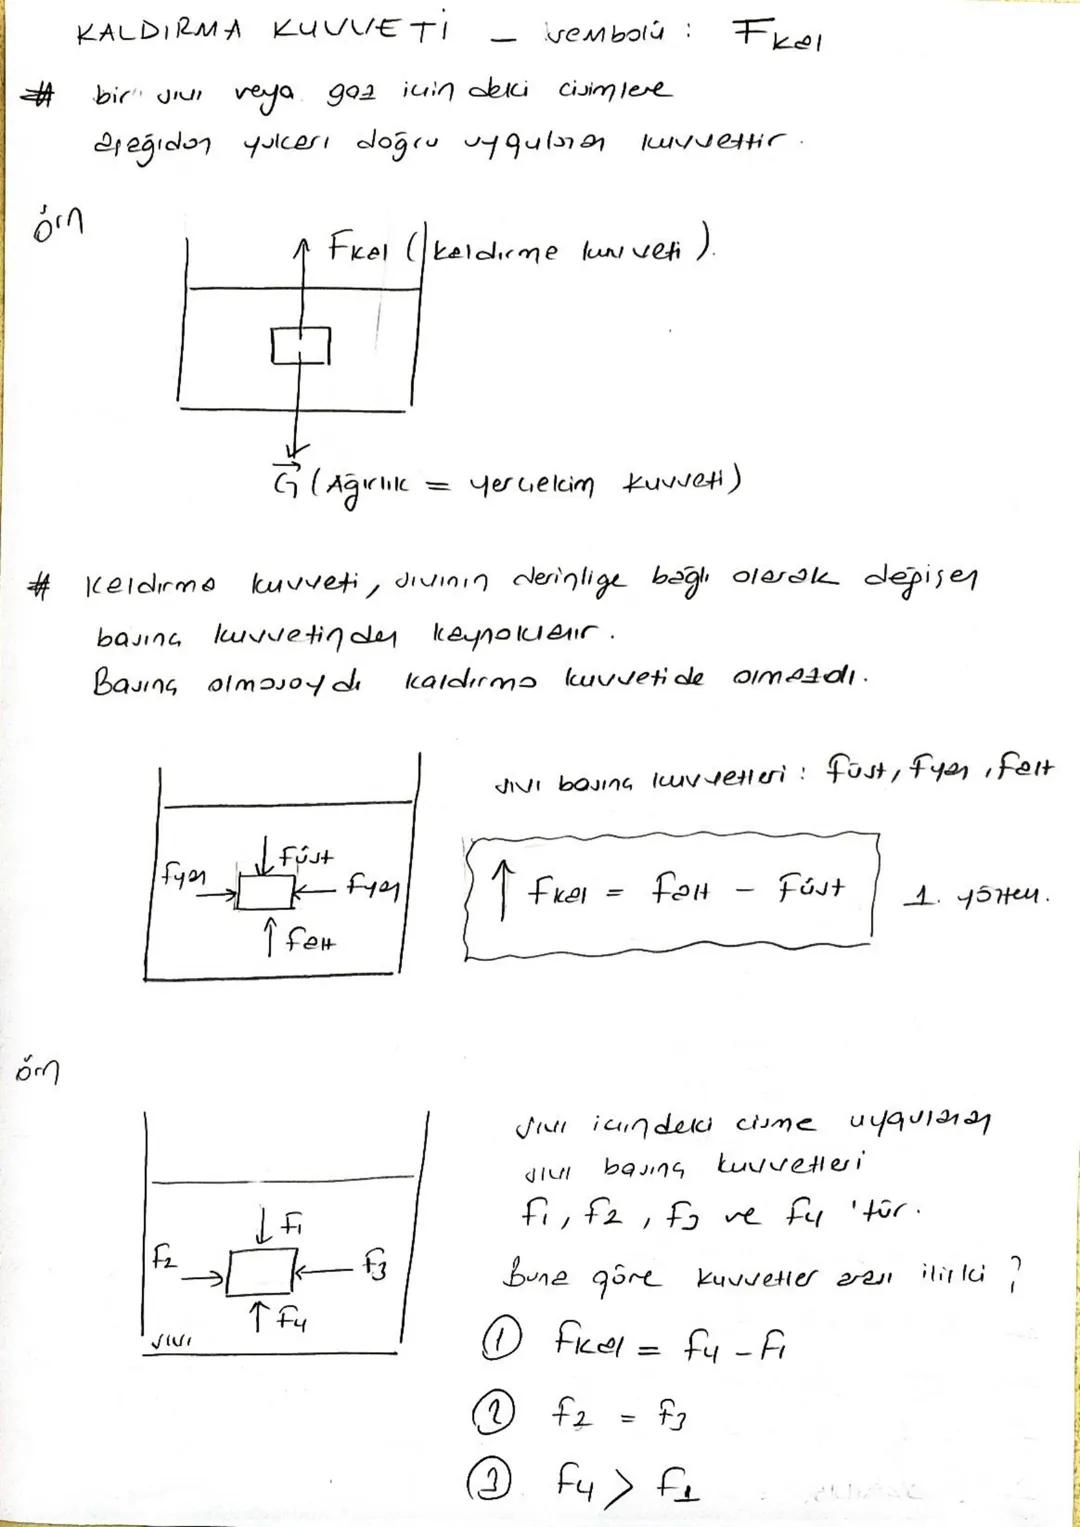 KALDIRMA KUVVETİ - sembolü : Fkal
# bir sıvı veya gaz içindeki cisimlere
aşağıdan yukarı doğru uygulanan kuvvettir.
örn
Fkal (kaldırma kuvveti).
G (Ağırlık = yerçekim kuvveti)
# Kaldırma kuvveti, sıvının derinliğe bağlı olarak değişen
basınç kuvvetinden kaynaklanır.
Basınç olmasaydı kaldırma kuvveti de olmazdı.
sıvı basınç kuvvetleri : Füst, Fyan, Falt
Füst
Fyan
Fyan
Falt
↑ Fkal = Falt - Füst
1. yöntem.
örn
sıvı içindeki cisme uygulanan
sıvı basınç kuvvetleri
F1, F2, F3 ve F4 'tür.
Buna göre kuvvetler arası ilişki ?
F1
F2
F3
F4
sıvı
① Fkal = F4 - F1
② F2 = F3
③ F4 > F1